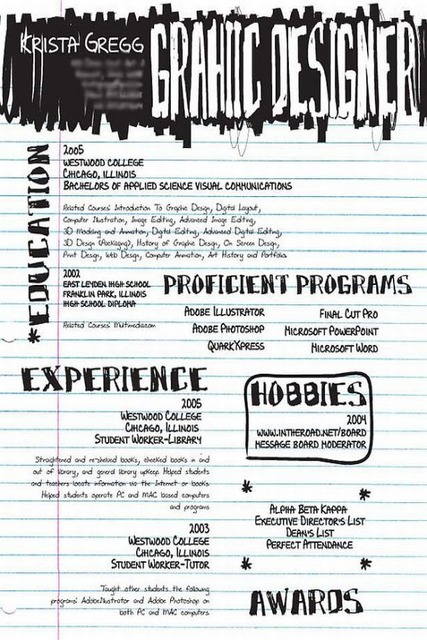 Krista Gregg
GRAHIIC DESIGNER
*EDUCATION
2005
Westwood College
Chicago, Illinois
Bachelors of Applied Science Visual Communications
Related Courses: Introduction To Graphic Design, Digital Layout,
Computer Illustration, Image Editing, Advanced Image Editing,
3D Modeling and Animation, Digital Editing, Advanced Digital Editing,
3D Design (Packaging), History of Graphic Design, On Screen Design,
Print Design, Web Design, Computer Animation, Art History and Portfolio.
2002
East Leyden High School
Franklin Park, Illinois
High School Diploma
Related Courses: Multimedia.com
PROFICIENT PROGRAMS
Adobe Illustrator
Adobe Photoshop
QuarkXpress
Final Cut Pro
Microsoft PowerPoint
Microsoft Word
EXPERIENCE
2005
Westwood College
Chicago, Illinois
Student Worker-Library
Straightened and re-shelved books, checked books in and
out of library, and general library upkeep. Helped students
and teachers locate information via the Internet or books.
Helped students operate PC and MAC based computers
and programs
2003
Westwood College
Chicago, Illinois
Student Worker-Tutor
Taught other students the following
programs: AdobeIllustrator and Adobe Photoshop on
both PC and MAC computers.
HOBBIES
2004
www.intheroad.net/board
Message Board Moderator
Alpha Beta Kappa
Executive Director's List
Dean's List
Perfect Attendance
AWARDS